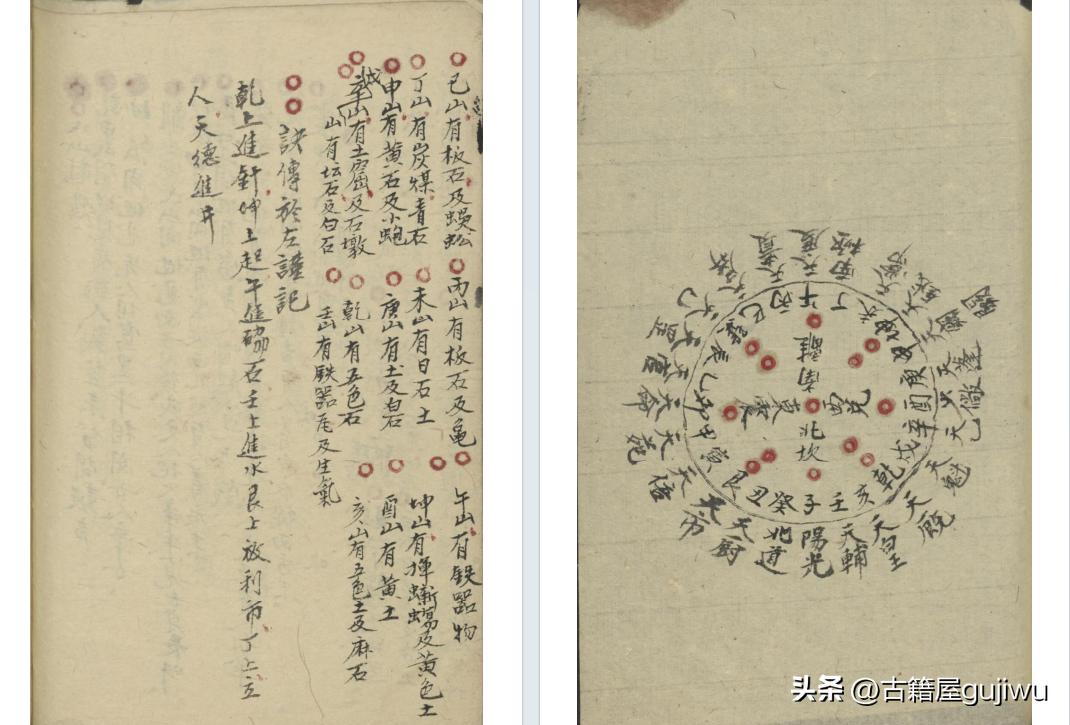 巳山有板石及蜈蚣　丙山有板石及龜　午山有鉄器物
丁山有炭煤青石　未山有日石土　坤山有蟬蝸及黄色土
申山有黄石及小蚫　庚山有土及白石　酉山有黄土
辛山有土窟及石墩　乾山有五色石　亥山有五色土及麻石
戌山有坛石及白石　壬山有鉄器瓦及生氣
訣傳於左謹記
乾上進針坤上起午進石壬上進水艮上放利市丁上立
人天德進井
離南
北坎
震
兌
午丁未坤申庚酉辛戌乾亥壬子癸丑艮寅甲卯乙辰巽巳丙
南極
天魁
天廐
天皇
天輔
陽光
北道
天厨
天市
天苑
天命
天官
頭条 @古籍屋gujiwu